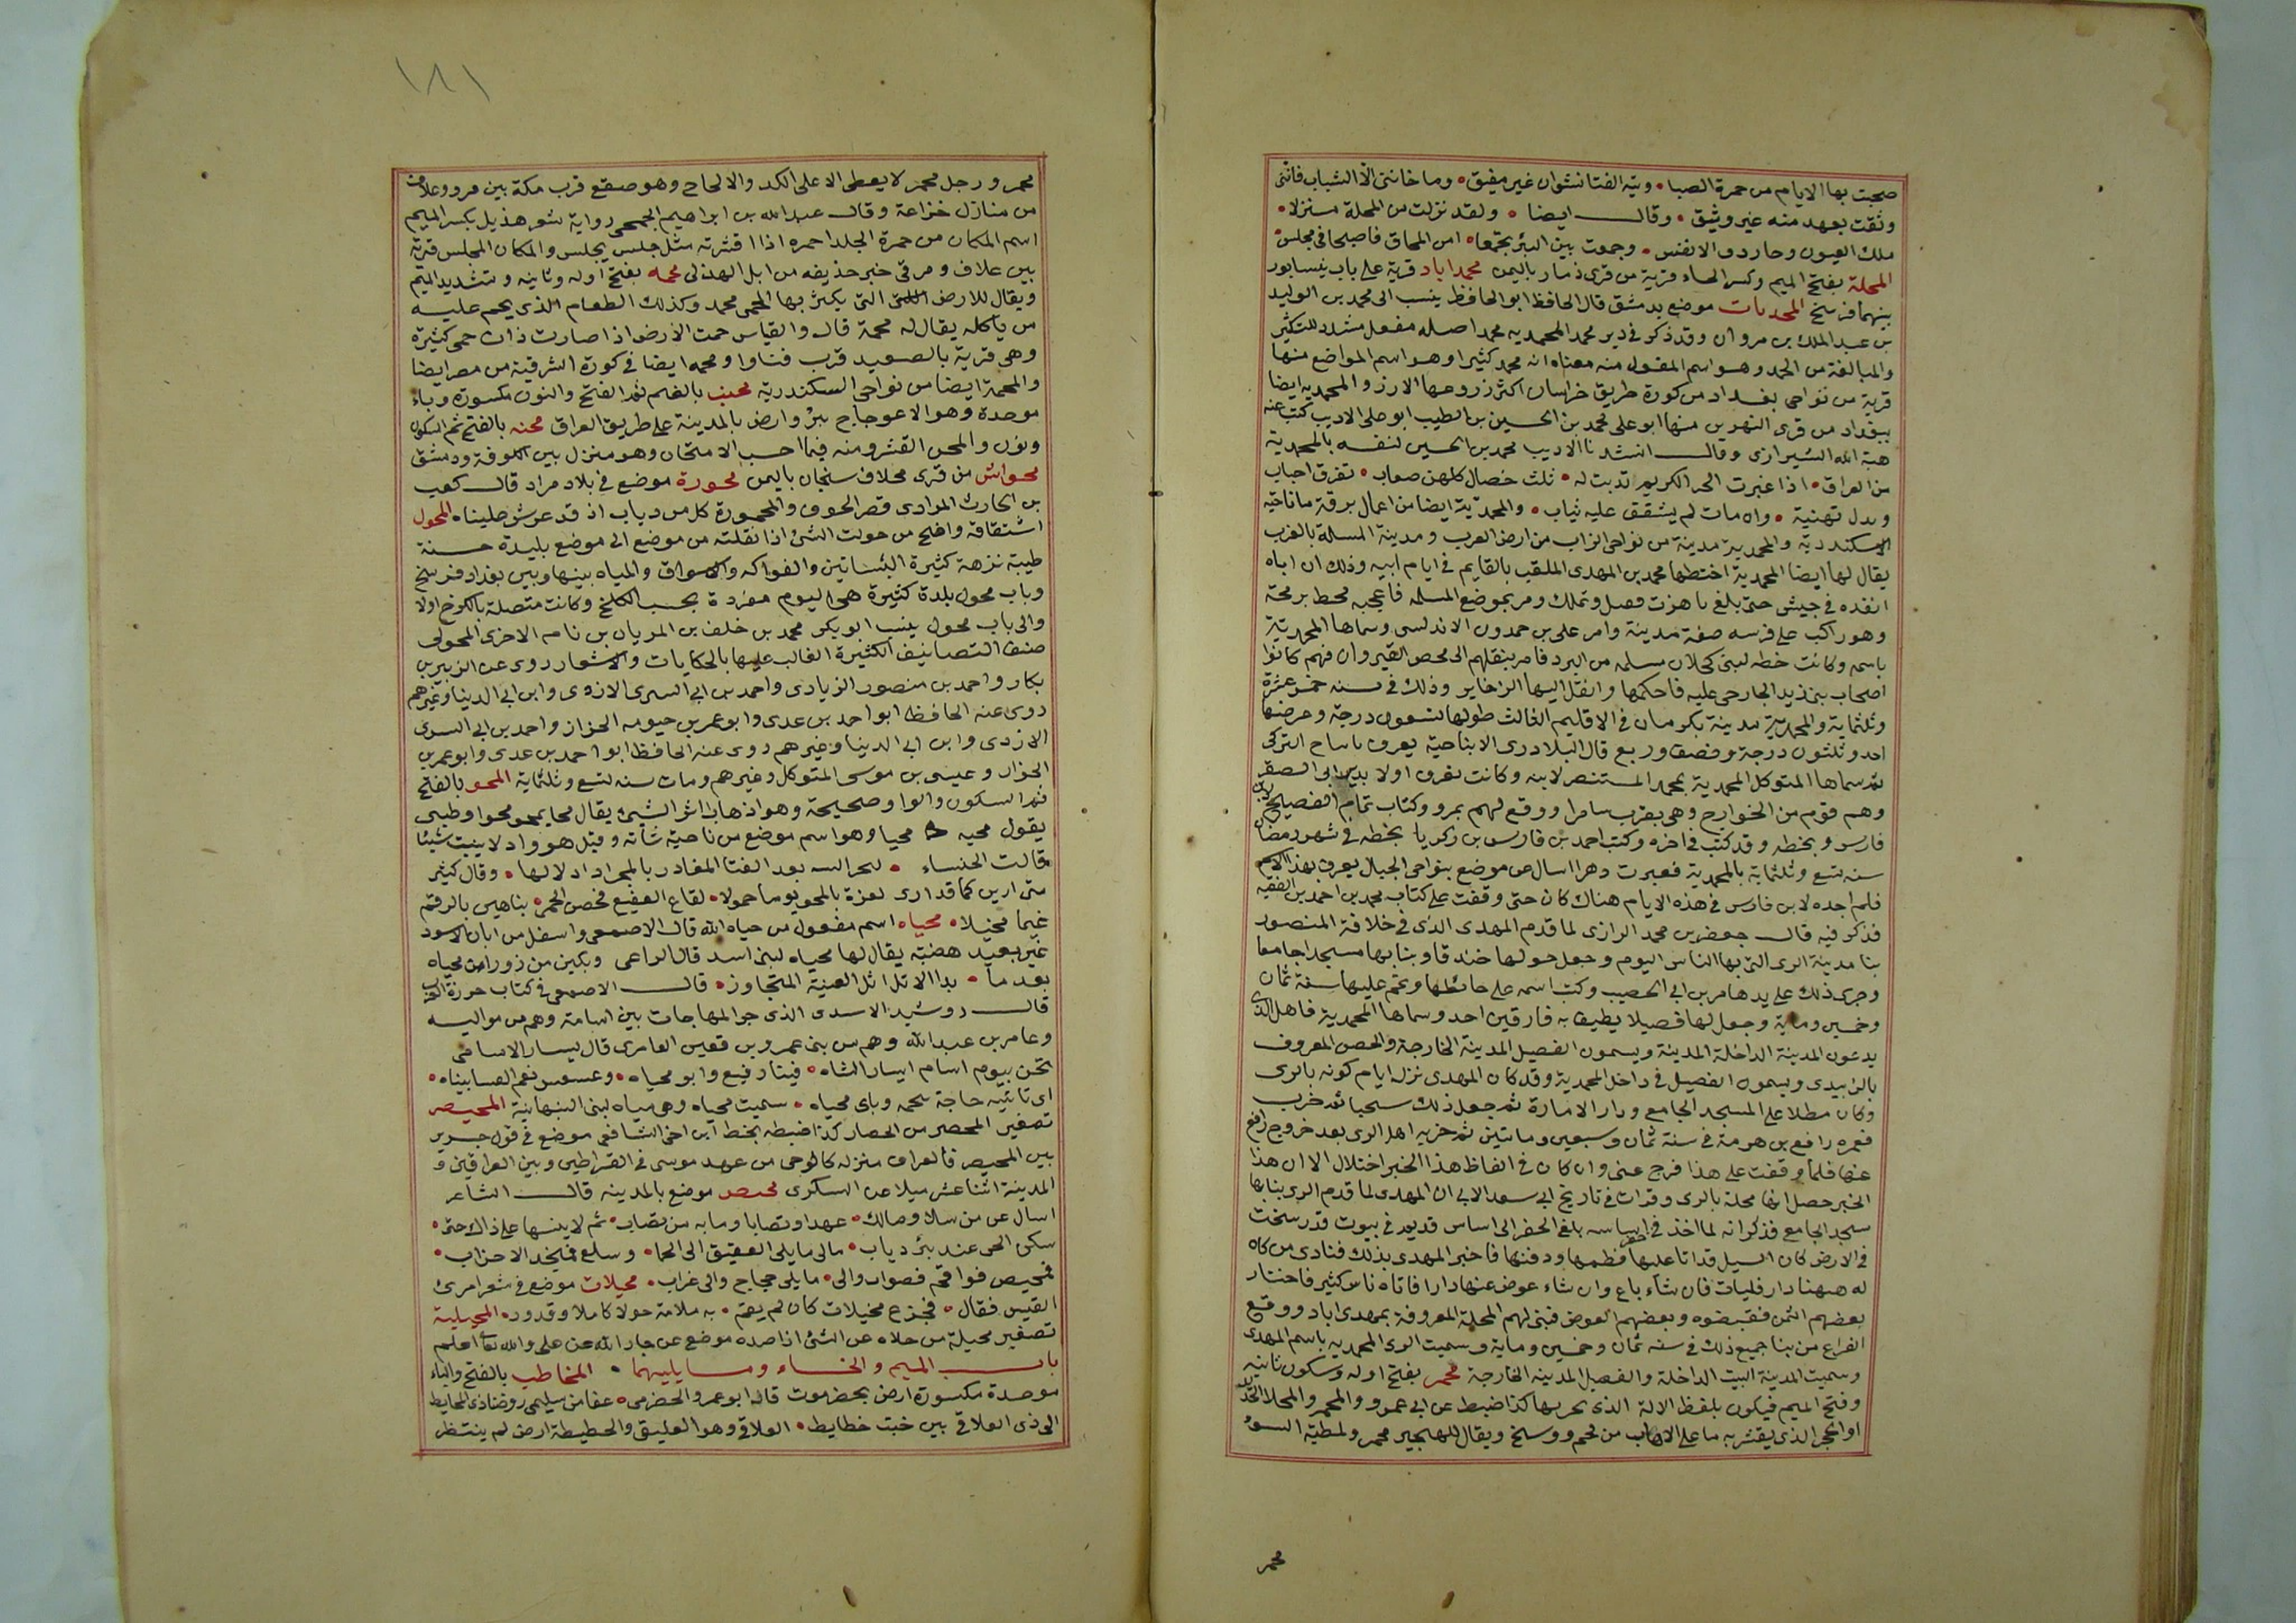 صحبت بها الايام من حمرة الصبا • وتيه الفتا نشوان غير مفيق • وما خانني الا الشباب فانني
وثقت بعهد منه غير وثيق • وقال ايضا • ولقد نزلت من المحلة منزلا •
ملك العيون وحار دون الانفس • وجمعت بين البئر مجتمعا • امن المحاق فاصبحا في مجلس
المحلة بفتح الميم وكسر الحاء قرية من قرى ذمار باليمن محمداباد قرية على باب نيسابور
بينهما فرسخ المحمديات موضع بدمشق قال الحافظ ابو الحافظ ينسب الى محمد بن الوليد
بن عبد الملك بن مروان وقد ذكر في دير محمد المحمديه محمد اصله مفعل مشدد للتكثير
والمبالغة من الحمد وهو اسم المفعول منه معناه انه محمد كثيرا وهو اسم المواضع منها
قرية من نواحى بغداد من كورة طريق خراسان اكثر زروعها الارز والمحمديه ايضا
ببغداد من قرى النهرين منها ابو على محمد بن الحسين بن الطيب ابو على الاديب كتب عنه
هبة الله الشيرازى وقال انشدنا الاديب محمد بن الحسين لنفسه بالمحمدية
من العراق • اذا عبرت الحر الكريم تدبت له • ثلث خصال كلهن صعاب • تفرق احباب
وبدل تهنية • وان مات لم يشقق عليه ثياب • والمحمدية ايضا من اعمال برقة من ناحية
الاسكندرية والمحمدية مدينة من نواحى الزاب من ارض المغرب ومدينة المسيلة بالغرب
يقال لها ايضا المحمدية اختطها محمد بن المهدى الملقب بالقايم في ايام ابيه وذلك ان اباه
انفذه في جيش حتى بلغ تاهرت فصل وتملك ومر بموضع المسله فاعجبه فخط برمحه
وهو راكب على فرسه صفة مدينة وامر على بن حمدون الاندلسى وسماها المحمدية
باسمه وكانت خطه لبنى كملان من البربر فامر بنقلهم الى فحص القيروان فهم كانوا
اصحاب بنى زيد الخارجى عليه فاحكمها وانقل اليها الذخاير وذلك في سنه خمس عشرة
وثلثماية والمحمدية مدينة بكرمان في الاقليم الثالث طولها تسعون درجة وعرضها
احد وثلثون درجة ونصف وربع قال البلادرى الابناحية يعرف باساح التركى
ثم سماها المتوكل المحمدية بمحمد المستنصر لابنه وكانت تعرف اولا بدير ابى الصقر
وهم قوم من الخوارج وهى بقرب سامرا ووقع لهم بمرو وكتاب تمام الفصيح لابن
فارس وبخطه وقد كتب في اخره وكتب احمد بن فارس بن زكريا بخطه في شهر رمضان
سنه تسع وثلثماية بالمحمدية فعبرت دهرا اسال عن موضع بنواحى الجبال يعرف بهذا الاسم
فلم اجده لابن فارس في هذه الايام هناك كان حتى وقفت على كتاب محمد بن احمد بن الفقيه
فذكر فيه قال جعفر بن محمد الرازى لما قدم المهدى الذى في خلافة المنصور
بنا مدينة الرى التى بها الناس اليوم وجعل حولها خندقا وبنا بها مسجدا جامعا
وجرى ذلك على يد عامر بن ابى الخصيب وكتب اسمه على حائطها وتم عليها سنة ثمان
وخمسين وماية وجعل لها فصيلا يطيف به فارقين احد وسماها المحمدية فاهل الرى
يدعون المدينة الداخلة المدينة ويسمون الفصيل المدينة الخارجة والحصن المعروف
بالزبيدى ويسمون الفصيل في داخل المحمدية وقد كان المهدى نزل ايام كونه بالرى
وكان مطلا على المسجد الجامع ودار الامارة ثم جعل ذلك سجنا ثم خرب
فعمره رافع بن هرثمة في سنة ثمان وسبعين ومائتين ثم خربه اهل الرى بعد خروج رافع
عنها فلما وقفت على هذا فرج عنى وان كان في الفاظ هذا الخبر اختلال الا ان هذا
الخبر حصل انها محلة بالرى وقرات في تاريخ ابى سعد الابى ان المهدى لما قدم الرى بنابها
مسجد الجامع فذكر انه لما اخذ في اساسه بلغ الحفر الى اساس قديم في بيوت قد رسخت
في الارض كان السيل قد اتا عليها فطمها ودفنها فاخبر المهدى بذلك فنادى من كان
له ههنا دار فليات فان شاء باع وان شاء عوض عنها دارا فاتاه ناس كثير فاختار
بعضهم الثمن فقبضوه وبعضهم العوض فبنى لهم المحلة المعروفة بمهدى اباد ووقع
الفراغ من بنا جميع ذلك في سنه ثمان وخمسين وماية وسميت الرى المحمديه باسم المهدى
وسميت المدينة البيت الداخلة والفصيل المدينة الخارجة محمر بفتح اوله وسكون ثانيه
وفتح الميم فيكون بلفظ الالة الذى يحربها كذا ضبط عن ابى عمرو والمحمر والمحلا الحديد
او الحجر الذى يقشر به ما على الاهاب من لحم ووسخ ويقال للهجين محمر ولمطية السوء
محمر
١٨١
محمر ورجل محمر لا يعطى الا على الكد والالحاح وهو صقع قرب مكة بين مر وعلاف
من منازل خزاعة وقال عبد الله بن ابراهيم الجمحى رواية شعر هذيل بكسر الميم
اسم المكان من حمرة الجلد احمره اذا قشرته مثل جلس يجلس والمكان المجلس قرية
بين علاف ومر فى خبر حذيفه من ابل الهذلى محمه بفتح اوله وثانيه وتشديد الميم
ويقال للارض اللتى التى يكثر بها الحمى محمه وكذلك الطعام الذى يحم عليه
من ياكله يقال له محمة قال والقياس حمت الارض اذا صارت ذات حمى كثيرة
وهى قرية بالصعيد قرب فتاوا ومحمه ايضا في كورة الشرقية من مصر ايضا
والمحمة ايضا من نواحى السكندرية محنب بالضم ثم الفتح والنون مكسورة وباء
موحدة وهو الاعوجاج بئر وارض بالمدينة على طريق العراق محنه بالفتح ثم السكون
ونون والمحن القشر ومنه فيما احسب الامتحان وهو منزل بين الكوفة ودمشق
محواش من قرى مخلاف سنحان باليمن محورة موضع في بلاد مراد قال كعب
بن الحارث المرادى قصر الحوف والمحورة كل من دباب اذ قد عرش حلينا • المحول
اشتقاقه واضح من حولت الشئ اذا نقلته من موضع الى موضع بليدة حسنة
طيبة نزهة كثيرة البساتين والفواكه والاسواق والمياه بينها وبين بغداد فرسخ
وباب محول بلدة كثيرة هى اليوم مفردة بجنب الكلخ وكانت متصلة بالكرخ اولا
والى باب محول ينسب ابو بكر محمد بن خلف بن المرزبان بن نامه الاخرى المحولى
صنف التصانيف الكثيرة الغالب عليها بالحكايات والاشعار روى عن الزبير بن
بكار واحمد بن منصور الزيادى واحمد بن ابى السرى الازدى وابن ابى الدنيا وغيرهم
روى عنه الحافظ ابو احمد بن عدى وابو عمر بن حيويه الخزاز واحمد بن ابى السرى
الازدى وابن ابى الدنيا وغيرهم روى عنه الحافظ ابو احمد بن عدى وابو عمر بن
الخزاز وعيسى بن موسى المتوكل وغيرهم ومات سنه تسع وثلثماية المحو بالفتح
ثم السكون والواو صحيحة وهو اذهاب اثر الشئ يقال محا يمحو محوا وطيى
يقول محيه محيا وهو اسم موضع من ناحية شانه وقيل هو واد لا ينبت شيئا
قالت الخنساء • لتجر المنيه بعد الفتا المغادر بالمحو اذلالها • وقال كثير
متى ارين كما قد ارى لعزة بالمحو يوما حمولا • لقاع النقيع فحصن الحمى • يناهين بالرقم
غيما مخيلا • محياه اسم مفعول من حياه الله قال الاصمعى واسفل من ابان الاسود
غير بعيد هضبة يقال لها محياه لبنى اسد قال الراعى وبكين من زورا من محياه
بعدما • بدا الاثل اثل الغنية المتجاوز • قال الاصمعى في كتاب جزيرة العرب
قال روشيد الاسدى الذى جر المهاجات بين اسامة وهم من مواليه
وعامر بن عبد الله وهم من بنى عمرو بن قعين العامرى قال يسار الاسامى
نحن بيوم اسام ايسار الشاه • فيتا رفيع وابو محياه • وعسعس نعم الفتى تبياه •
اى تاتيه حاجة نحمه وباى محياه • سميت محياه وهى مياه لبنى النبهانية المحيصر
تصغير المحصر من الحصار كذا ضبطه بخط ابن اخى الشافعى موضع في قول جرير
بين المحيصر فالعراف منزله كالوحى من عهد موسى في القراطيس وبين العراقين و
المدينة اثنا عشر ميلا عن السكرى محيص موضع بالمدينه قال الشاعر
اسال عن من سلا وصالك • عهدا وتصابا وما به من تصاب • ثم لا ينسها على ذاك حتى •
سكن الحى عند بئر دياب • مالى ما يلى العقيق الى الحما • وسلع فمسجد الاحزاب •
فمحيص فواقم فصوار والى • ما يلى حجاج والى غراب • محيلات موضع في شعر امرئ
القيس فقال • فجزع محيلات كان لم يقم • به ملامة حولا كاملا وقدور • المحيلية
تصغير محيلة من حلاه عن الشئ اذا صده موضع عن جار الله عن على والله تعا اعلم
باب الميم والخاء وما يليهما • المخاطب بالفتح والباء
موحدة مكسورة ارض بحضرموت قال ابو عمرو الحضرمى • عفا من سليمى روضتا ذى المحايط
الى ذى العلاقى بين خبت خطايط • العلاقى وهو العليق والحطيطة ارض لم ينتظر